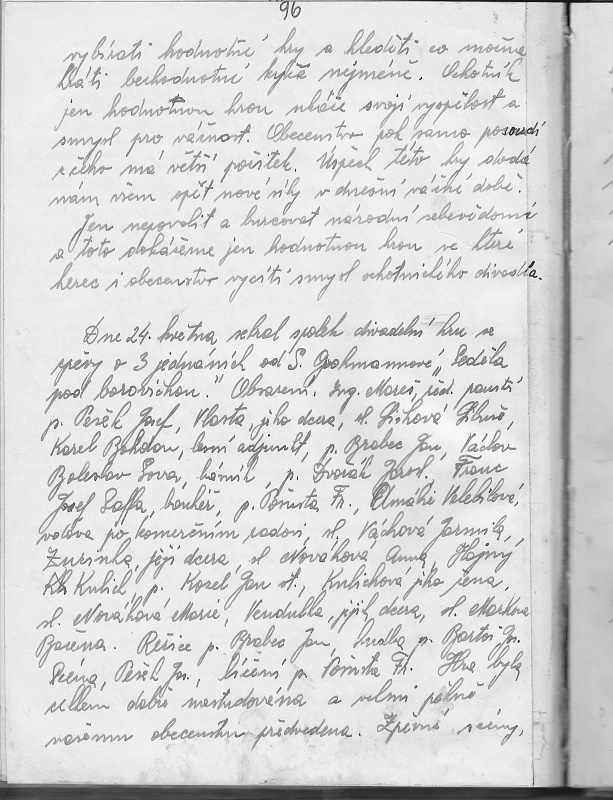 96
vybírati hodnotné hry a hleděti co možná
hráti bezhodnotné kýče nejméně. Ochotník
jen hodnotnou hrou ukáže svoji vyspělost a
smysl pro vážnost. Obecenstvo pak samo posoudí
z čeho má větší požitek. Úspěch této hry dodá
nám všem opět nové síly v dnešní vážné době.
Jen nepovolit a burcovat národní sebevědomí
a toto dokážeme jen hodnotnou hrou ve které
herec i obecenstvo vycítí smysl ochotnického divadla.
Dne 24. května sehrál spolek divadelní hru se
zpěvy o 3 jednáních od S. Grohmannové „Seděla
pod borovičkou." Obsazení. Ing. Mareš, řed. panství
p. Pešek Josef, Vlasta, jeho dcera, sl. Lišková Libuše,
Karel Bohdan, lesní adjunkt, p. Brabec Jan, Václav
Boleslav Sova, básník, p. Dvořák Jarosl., Franc
Josef Saffa, bankéř, p. Pošusta Fr., Amálie Velebilová,
vdova po komerčním radovi, sl. Váchová Jarmila,
Zurinka, její dcera, sl. Nováková Anna, Hajný
Kulich, p. Kozel Jan st., Kulichová jeho žena,
sl. Nováková Marie, Vendulka, jejich dcera, sl. Markova
Božena. Režie p. Brabec Jan, hudba p. Bartoš Jos.
Scéna, Pešek Jos., líčení p. Pošusta Fr. Hra byla
celkem dobře nastudována a velmi pěkně
našemu obecenstvu předvedena. Zpěvné scény,